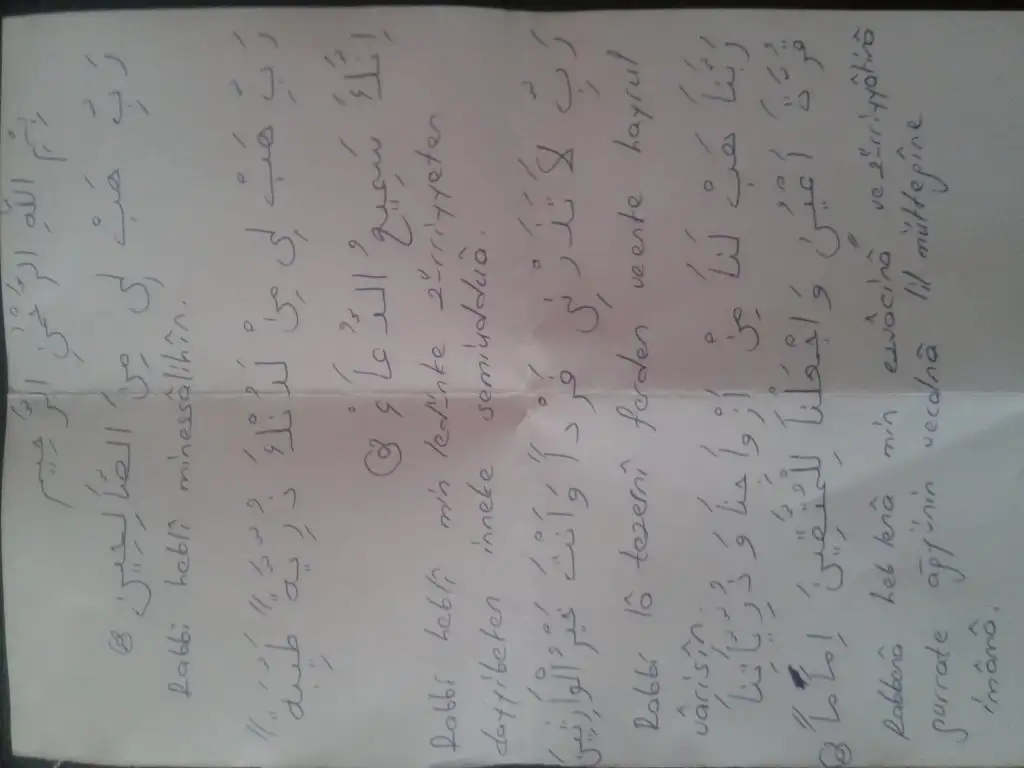 بِسْمِ اللّٰهِ الرَّحْمٰنِ الرَّحِيمِ
رَبِّ هَبْ لِى مِنَ الصَّالِحِينَ
Rabbi heblî minessâlihîn.
رَبِّ هَبْ لِى مِنْ لَدُنْكَ ذُرِّيَّةً طَيِّبَةً
إِنَّكَ سَمِيعُ الدُّعَاءِ
Rabbî heblî min ledünke zürriyyeten
dayyibeten inneke semiudduâ.
رَبِّ لَا تَذَرْنِى فَرْدًا وَاَنْتَ خَيْرُ الْوَارِثِينَ
Rabbi lâ tezernî ferden veente hayrul
vârisîn.
رَبَّنَا هَبْ لَنَا مِنْ اَزْوَاجِنَا وَذُرِّيَّاتِنَا
قُرَّةَ اَعْيُنٍ وَاجْعَلْنَا لِلْمُتَّقِينَ اِمَامًا
Rabbenâ heb lenâ min ezvâcinâ vezürriyyâtinâ
gurrate ağyünin vecalnâ lil müttegîne
imâmâ.